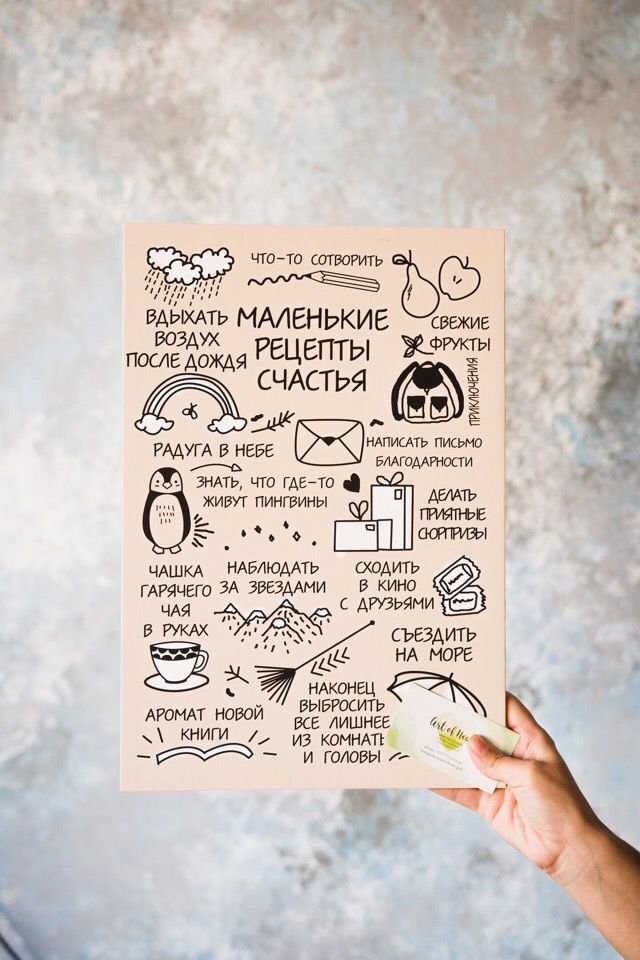 ЧТО-ТО СОТВОРИТЬ
МАЛЕНЬКИЕ
РЕЦЕПТЫ
СЧАСТЬЯ
ВДЫХАТЬ
ВОЗДУХ
ПОСЛЕ ДОЖДЯ
СВЕЖИЕ
ФРУКТЫ
ПРИКЛЮЧЕНИЯ
РАДУГА В НЕБЕ
НАПИСАТЬ ПИСЬМО
БЛАГОДАРНОСТИ
ЗНАТЬ, ЧТО ГДЕ-ТО
ЖИВУТ ПИНГВИНЫ
ДЕЛАТЬ
ПРИЯТНЫЕ
СЮРПРИЗЫ
ЧАШКА
ГАРЯЧЕГО
ЧАЯ
В РУКАХ
НАБЛЮДАТЬ
ЗА ЗВЕЗДАМИ
СХОДИТЬ
В КИНО
С ДРУЗЬЯМИ
СЪЕЗДИТЬ
НА МОРЕ
АРОМАТ НОВОЙ
КНИГИ
НАКОНЕЦ
ВЫБРОСИТЬ
ВСЕ ЛИШНЕЕ
ИЗ КОМНАТЫ
И ГОЛОВЫ
Art of